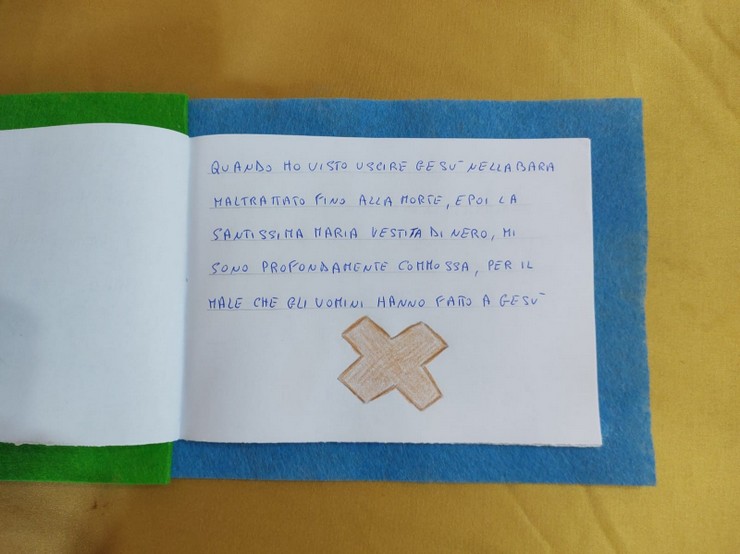 QUANDO HO VISTO USCIRE GESÙ NELLA BARA
MALTRATTATO FINO ALLA MORTE, E POI LA
SANTISSIMA MARIA VESTITA DI NERO, MI
SONO PROFONDAMENTE COMMOSSA, PER IL
MALE CHE GLI UOMINI HANNO FATTO A GESÙ